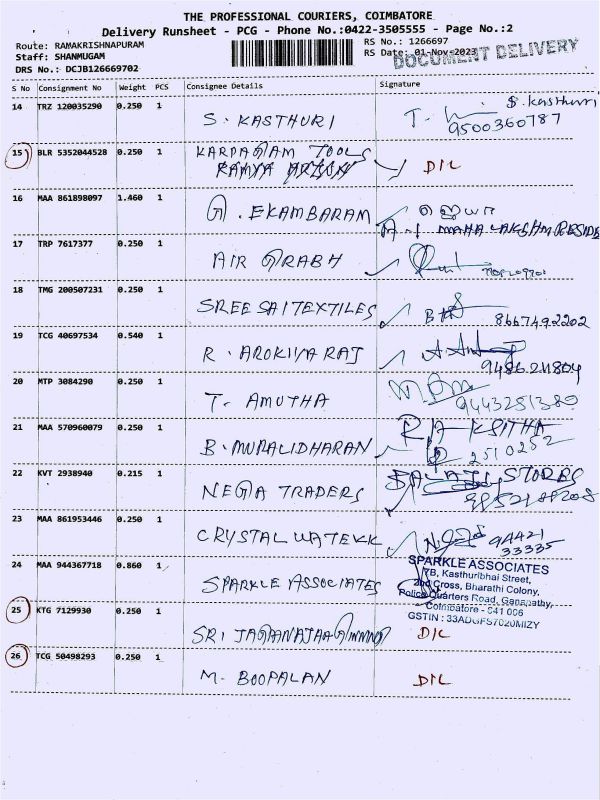 THE PROFESSIONAL COURIERS, COIMBATORE
Delivery Runsheet - PCG - Phone No.:0422-3505555 - Page No.:2
Route: RAMAKRISHNAPURAM
Staff: SHANMUGAM
DRS No.: DCJB126669702
RS No.: 1266697
RS Date: 01-Nov-2023
DOCUMENT DELIVERY
S No Consignment No Weight PCS Consignee Details Signature
14 TRZ 120035290 0.250 1 S. KASTHURI T. S. Kasthuri
9500360787
15 BLR 5352044528 0.250 1 KARPAGAM TOOLS D/L
16 MAA 861898097 1.460 1 G. EKAMBARAM
MAHA LAKSHMI RESIDE
17 TRP 7617377 0.250 1 AIR GRABH
18 TMG 200507231 0.250 1 SREE SAI TEXTILES 8667492202
19 TCG 40697534 0.540 1 R. AROKIYA RAJ
20 MTP 3084290 0.250 1 T. AMUTHA
9443251380
21 MAA 570960079 0.250 1 B. MURALIDHARAN RAKSITHA
2510252
22 KVT 2938940 0.215 1 NEGA TRADERS BALAJI STORES
23 MAA 861953446 0.250 1 CRYSTAL WATEKK 94421
33335
24 MAA 944367718 0.860 1 SPARKLE ASSOCIATES
SPARKLE ASSOCIATES
7B, Kasthuribhai Street,
2nd Cross, Bharathi Colony,
Police Quarters Road, Ganapathy,
Coimbatore - 641 006
GSTIN : 33ADGFS7020MIZY
25 KTG 7129930 0.250 1 SRI D/L
26 TCG 50498293 0.250 1 M. BOOPALAN D/L